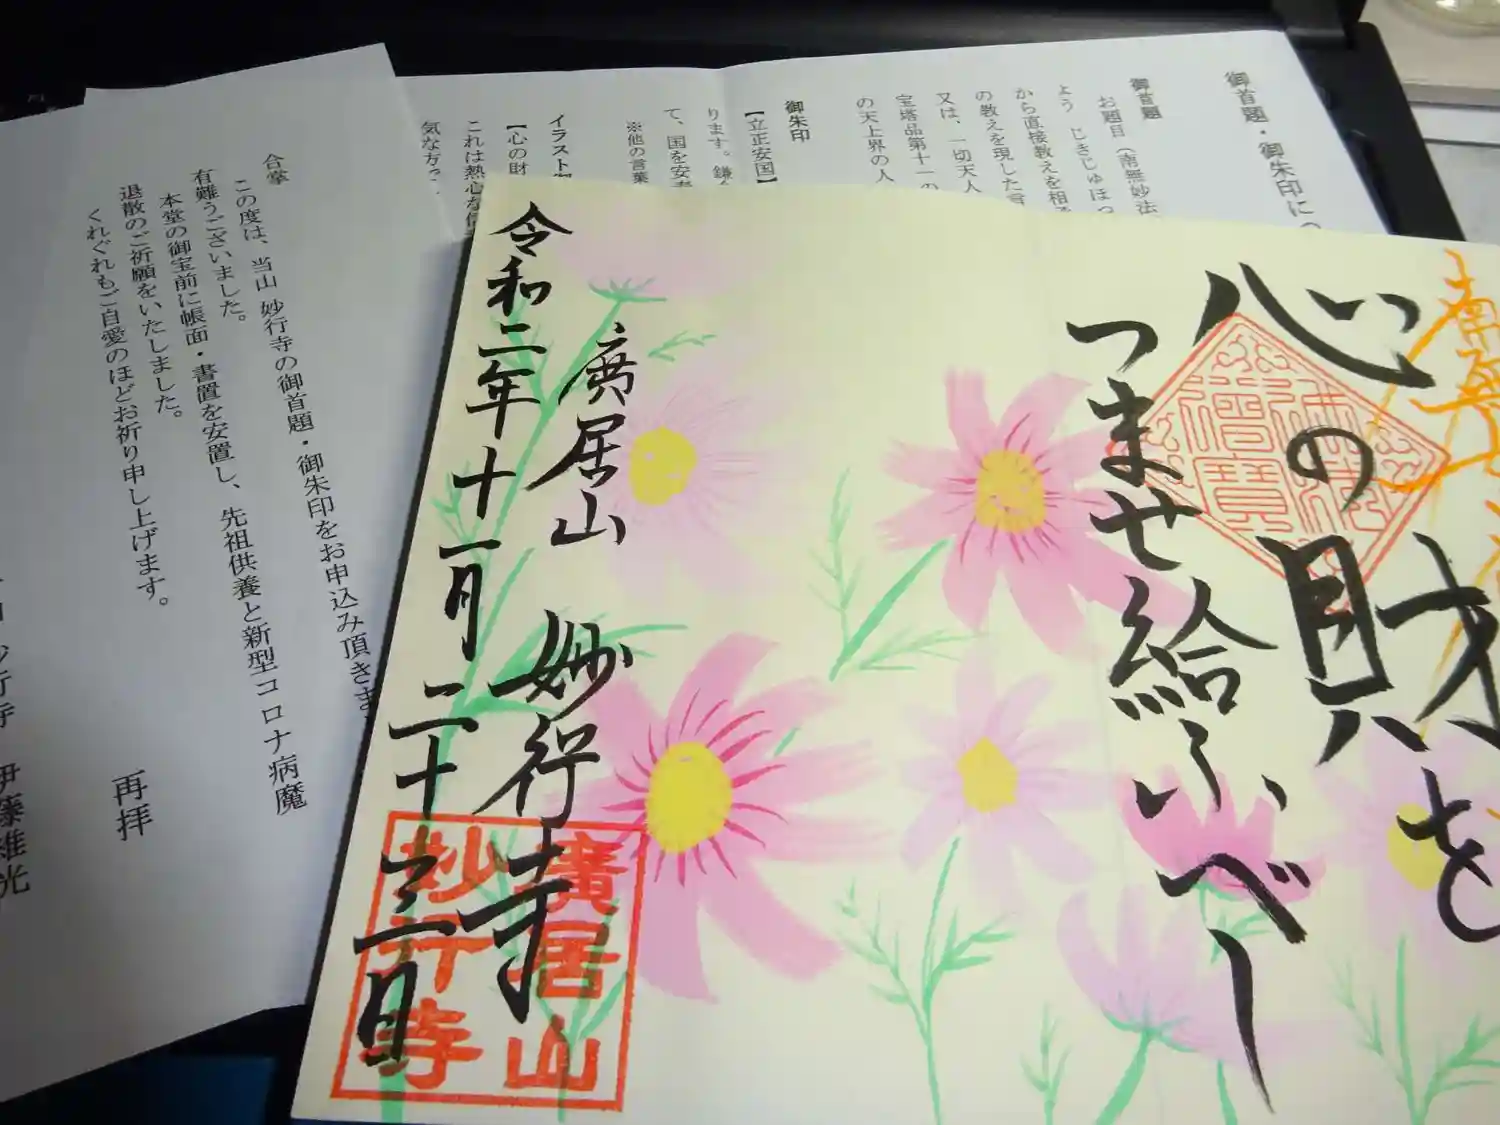 御首題・御朱印に
御首題
お題目（南無妙法
よう じきじゅほっ
から直接教えを相
の教えを現した言
又は、一切天人
宝塔品第十一の
の天上界の人
御朱印
【立正安国】
ります。鎌
て、国を安
※他の言葉
イラスト
【心の財
これは熱心な信
気な方
合掌
この度は、当山 妙行寺の御首題・御朱印をお申込み頂きま
有難うございました。
本堂の御宝前に帳面・書置を安置し、先祖供養と新型コロナ病魔
退散のご祈願をいたしました。
くれぐれもご自愛のほどお祈り申し上げます。
再拝
妙行寺 伊藤維光
南無妙法
心の財を
つませ給ふべし
廣居山 妙行寺
令和二年十一月二十三日
廣居山
妙行寺